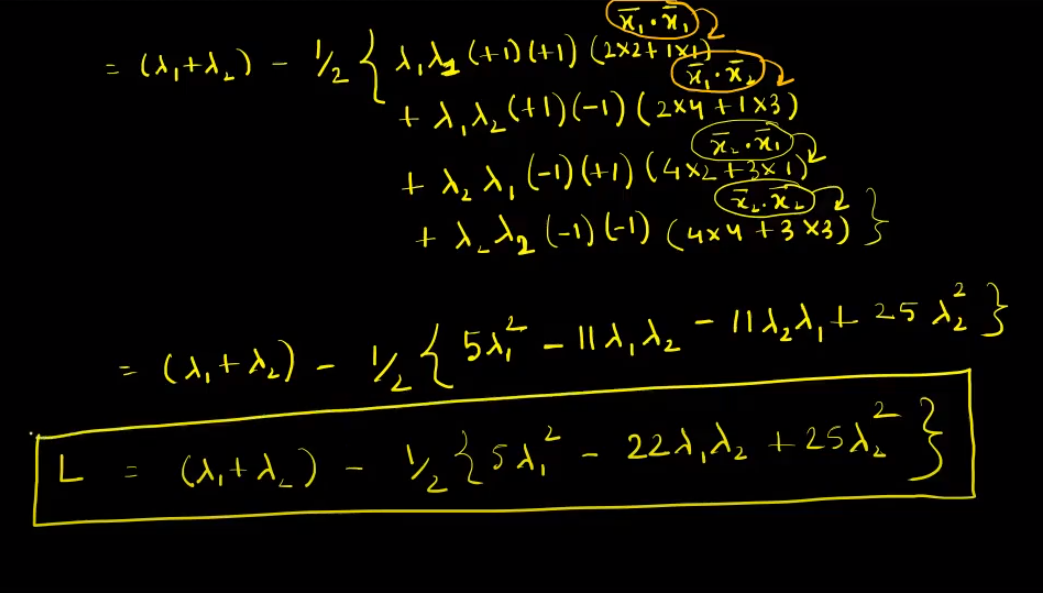 x̄₁·x̄₁
= (λ₁+λ₂) - ½ { λ₁λ₁ (+1)(+1) (2×2+1×1)
x̄₁·x̄₂
+ λ₁λ₂ (+1)(-1) (2×4+1×3)
x̄₂·x̄₁
+ λ₂λ₁ (-1)(+1) (4×2+3×1)
x̄₂·x̄₂
+ λ₂λ₂ (-1)(-1) (4×4+3×3) }
= (λ₁+λ₂) - ½ { 5λ₁² - 11λ₁λ₂ - 11λ₂λ₁ + 25λ₂² }
L = (λ₁+λ₂) - ½ { 5λ₁² - 22λ₁λ₂ + 25λ₂² }